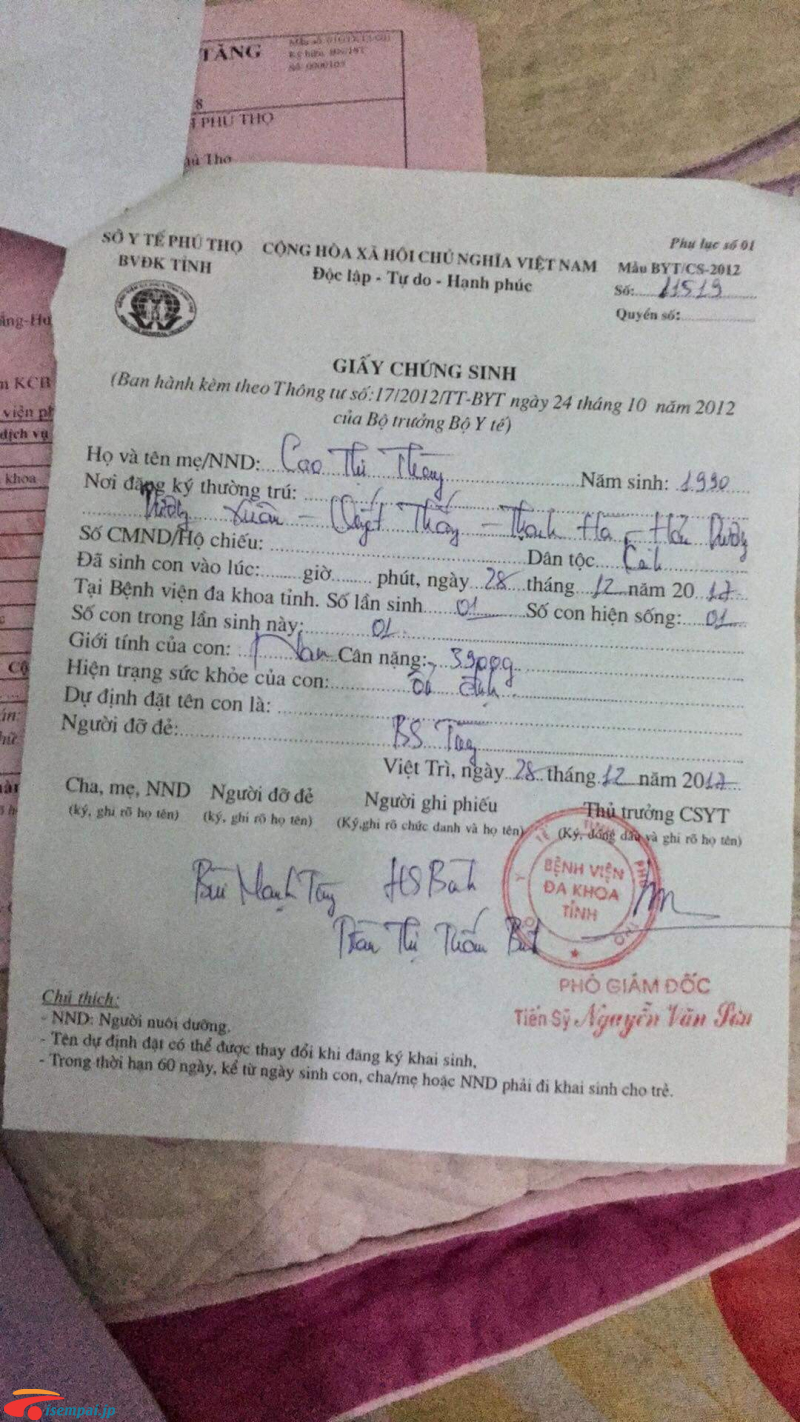 TĂNG
8
PHÚ THỌ
SỞ Y TẾ PHÚ THỌ CỘNG HÒA XÃ HỘI CHỦ NGHĨA VIỆT NAM Phụ lục số 01
BVĐK TỈNH Độc lập - Tự do - Hạnh phúc Mẫu BYT/CS-2012
Số: 11519
Quyển số:
GIẤY CHỨNG SINH
(Ban hành kèm theo Thông tư số:17/2012/TT-BYT ngày 24 tháng 10 năm 2012
của Bộ trưởng Bộ Y tế)
Họ và tên mẹ/NND: Cao Thị Năm sinh: 1990
Nơi đăng ký thường trú:
Xuân - Quyết Thắng - Thanh Hà - Hải Dương
Số CMND/Hộ chiếu: Dân tộc
Đã sinh con vào lúc: giờ phút, ngày 28 tháng 12 năm 2017
Tại Bệnh viện đa khoa tỉnh. Số lần sinh 01 Số con hiện sống: 01
Số con trong lần sinh này: 01
Giới tính của con: Nam Cân nặng: 3900g
Hiện trạng sức khỏe của con: Ổn định
Dự định đặt tên con là:
Người đỡ đẻ: BS
Việt Trì, ngày 28 tháng 12 năm 2017
Cha, mẹ, NND Người đỡ đẻ Người ghi phiếu Thủ trưởng CSYT
(ký, ghi rõ họ tên) (ký, ghi rõ họ tên) (Ký,ghi rõ chức danh và họ tên) (Ký, đóng dấu và ghi rõ họ tên)
BỆNH VIỆN
ĐA KHOA
TỈNH
Bùi Mạnh HS
Trần Thị Thắm
PHÓ GIÁM ĐỐC
Tiến Sỹ Nguyễn Văn
Chú thích:
- NND: Người nuôi dưỡng.
- Tên dự định đặt có thể được thay đổi khi đăng ký khai sinh,
- Trong thời hạn 60 ngày, kể từ ngày sinh con, cha/mẹ hoặc NND phải đi khai sinh cho trẻ.
isempai.jp